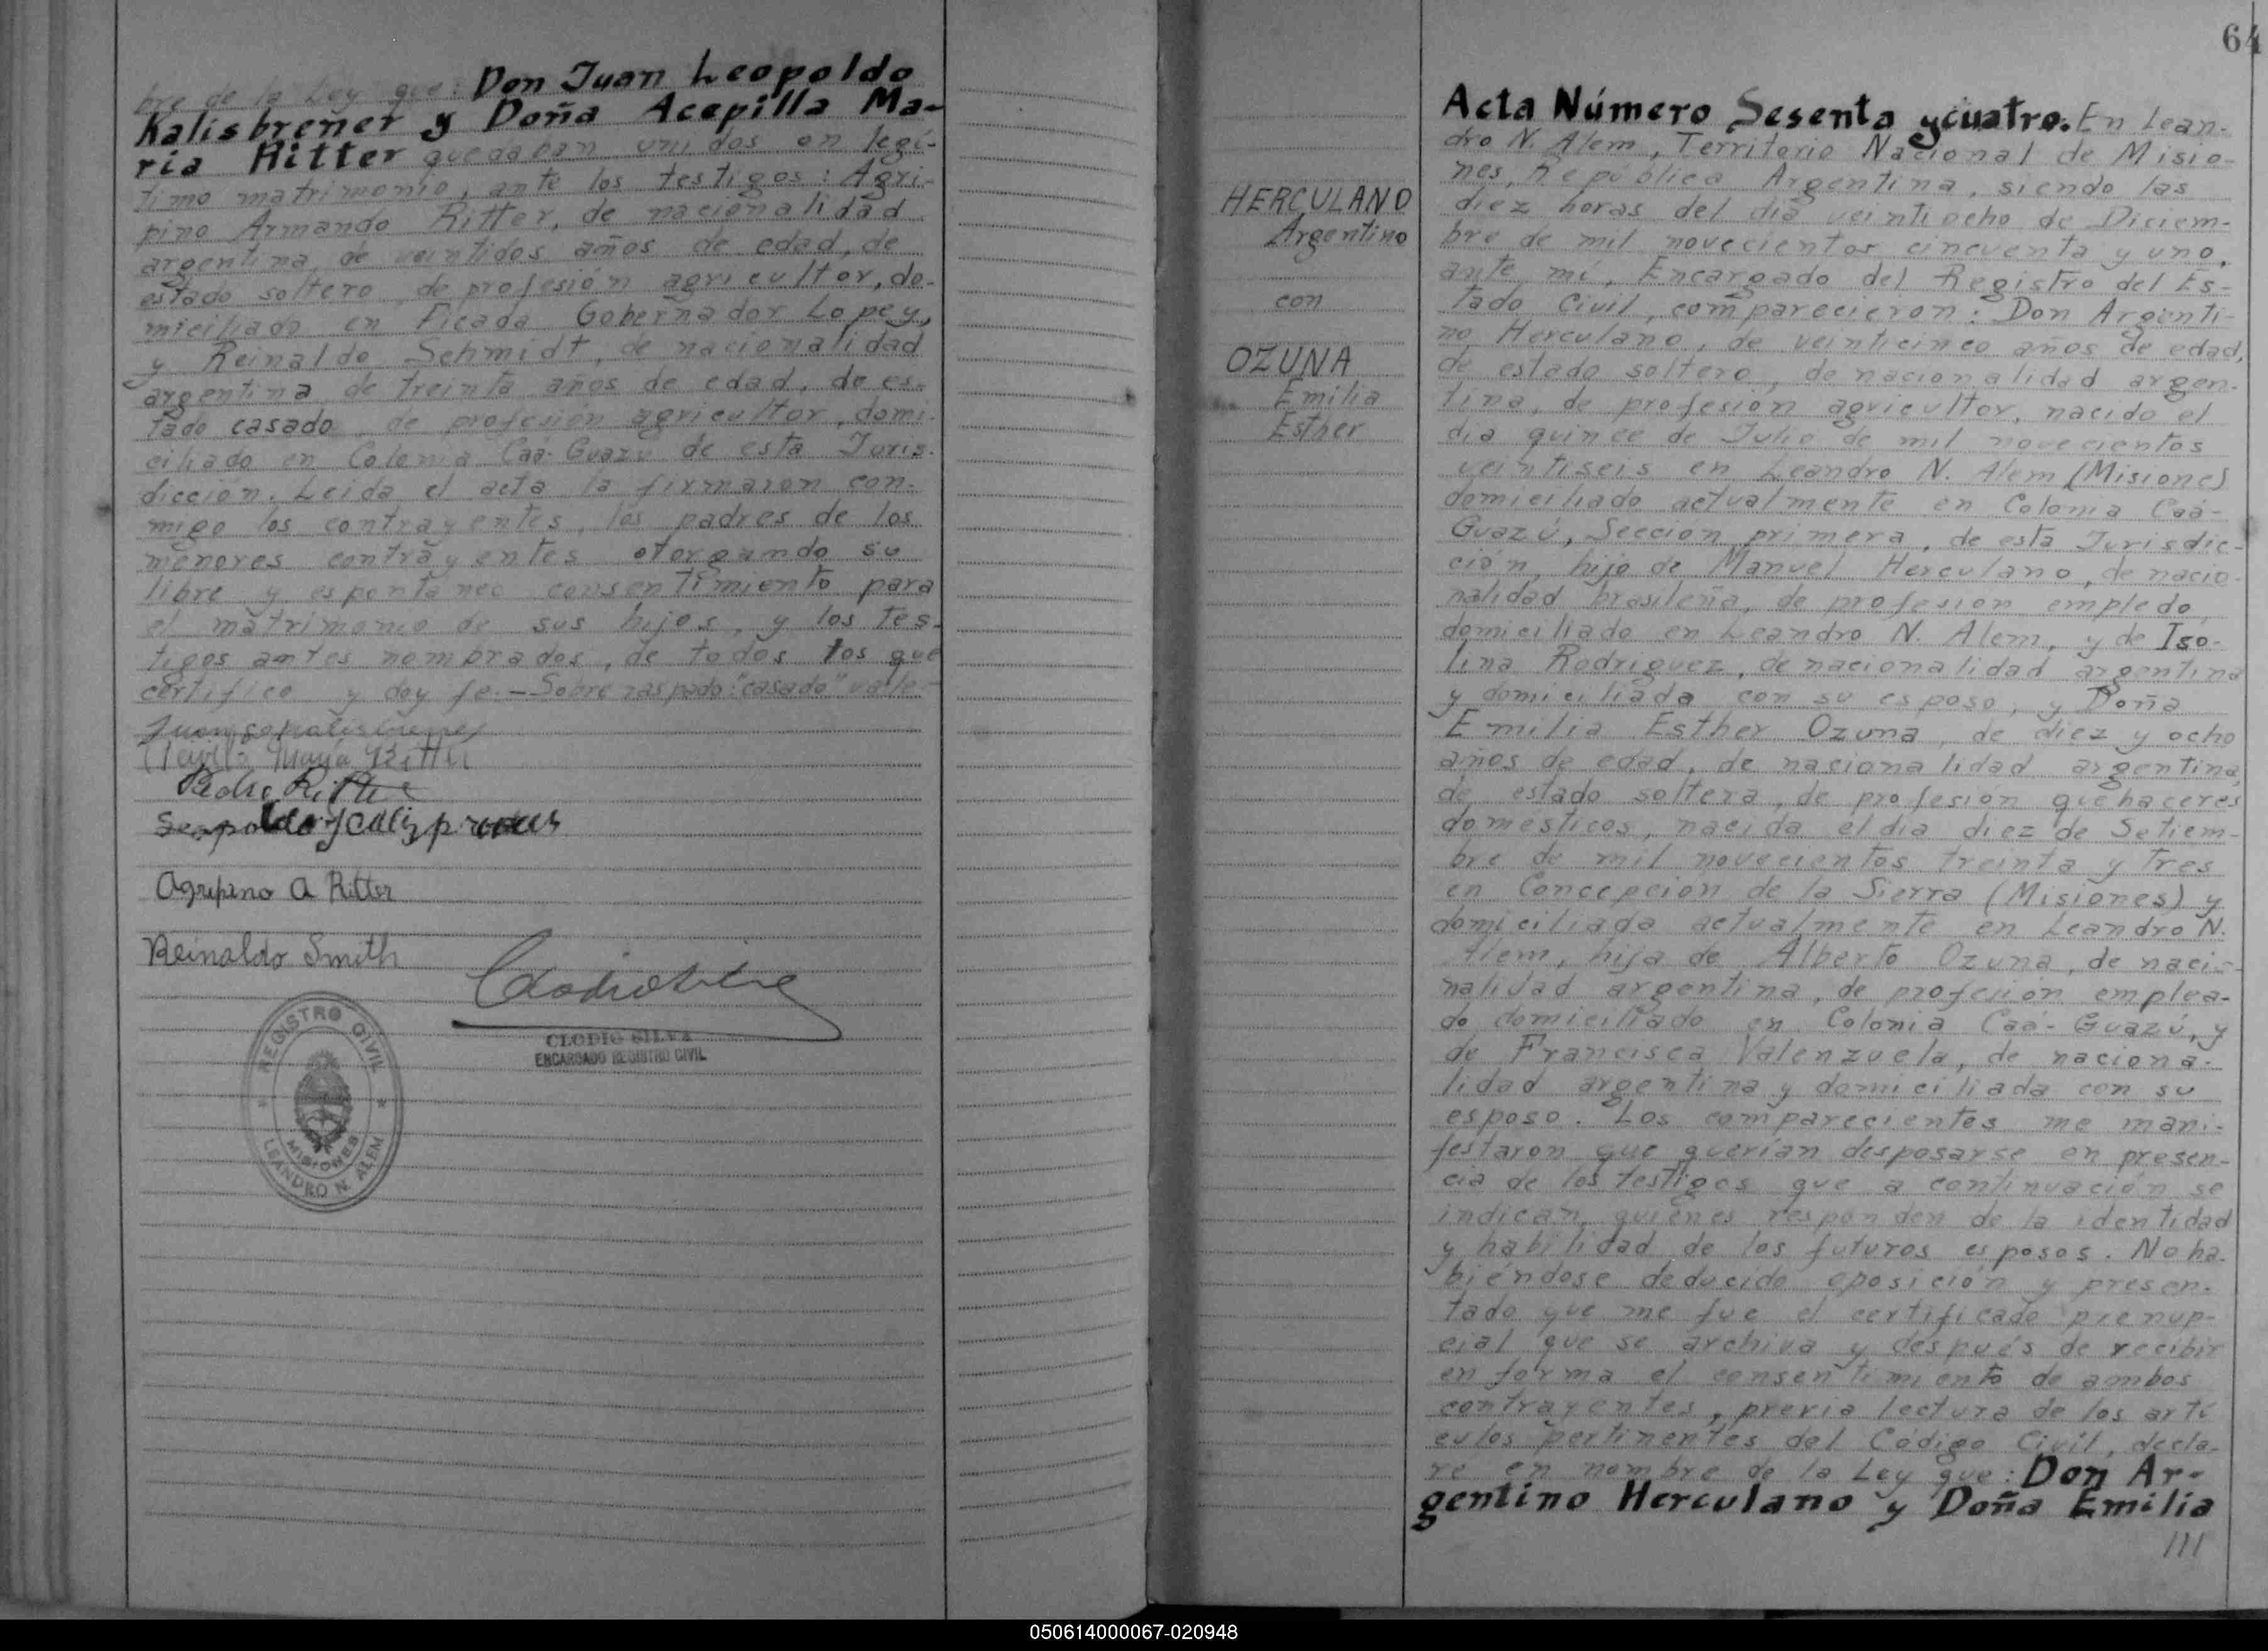 bre de la Ley que: Don Juan Leopoldo
Kalisbrener y Doña Acepilla Ma-
ría Ritter quedaban unidos en legí-
timo matrimonio, ante los testigos: Agri-
pino Armando Ritter, de nacionalidad
argentina, de veintidos años de edad, de
estado soltero, de profesión agricultor, do-
miciliado en Picada Gobernador Lopez,
y Reinaldo Schmidt, de nacionalidad
argentina de treinta años de edad, de es-
tado casado, de profesión agricultor, domi-
ciliado en Colonia Caá-Guazú de esta Juris-
dicción. Leida el acta la firmaron con-
migo los contrayentes, los padres de los
menores contrayentes otorgando su
libre y espontaneo consentimiento para
el matrimonio de sus hijos, y los tes-
tigos antes nombrados, de todos los que
certifico y doy fe.— Sobre raspado: "casado" vale.
María Ritter
Pedro Ritter
Agripino A Ritter
Reinaldo Smith
CLODIO SILVA
ENCARGADO REGISTRO CIVIL
REGISTRO CIVIL
MISIONES
LEANDRO N. ALEM
64
HERCULANO
Argentino
con
OZUNA
Emilia
Esther
Acta Número Sesenta y cuatro. En Lean-
dro N. Alem, Territorio Nacional de Misio-
nes, República Argentina, siendo las
diez horas del día veintiocho de Diciem-
bre de mil novecientos cincuenta y uno,
ante mí, Encargado del Registro del Es-
tado Civil, comparecieron: Don Argenti-
no Herculano, de veinticinco años de edad,
de estado soltero, de nacionalidad argen-
tina, de profesión agricultor, nacido el
día quince de Julio de mil novecientos
veintiseis en Leandro N. Alem (Misiones)
domiciliado actualmente en Colonia Caá-
Guazú, Sección primera, de esta Jurisdic-
ción, hijo de Manuel Herculano, de nacio-
nalidad brasileña, de profesión empledo,
domiciliado en Leandro N. Alem, y de Iso-
lina Rodriguez, de nacionalidad argentina
y domiciliada con su esposo, y Doña
Emilia Esther Ozuna, de diez y ocho
años de edad, de nacionalidad argentina,
de estado soltera, de profesión quehaceres
domésticos, nacida el día diez de Setiem-
bre de mil novecientos treinta y tres
en Concepción de la Sierra (Misiones) y
domiciliada actualmente en Leandro N.
Alem, hija de Alberto Ozuna, de nacio-
nalidad argentina, de profesión emplea-
do domiciliado en Colonia Caá-Guazú, y
de Francisca Valenzuela, de naciona-
lidad argentina y domiciliada con su
esposo. Los comparecientes me mani-
festaron que querían desposarse en presen-
cia de los testigos que a continuación se
indican, quienes responden de la identidad
y habilidad de los futuros esposos. No ha-
biéndose deducido oposición y presen-
tado que me fue el certificado prenup-
cial que se archiva y después de recibir
en forma el consentimiento de ambos
contrayentes, previa lectura de los artí
culos pertinentes del Código Civil, decla-
ré en nombre de la Ley que: Don Ar-
gentino Herculano y Doña Emilia
///
050614000067-020948